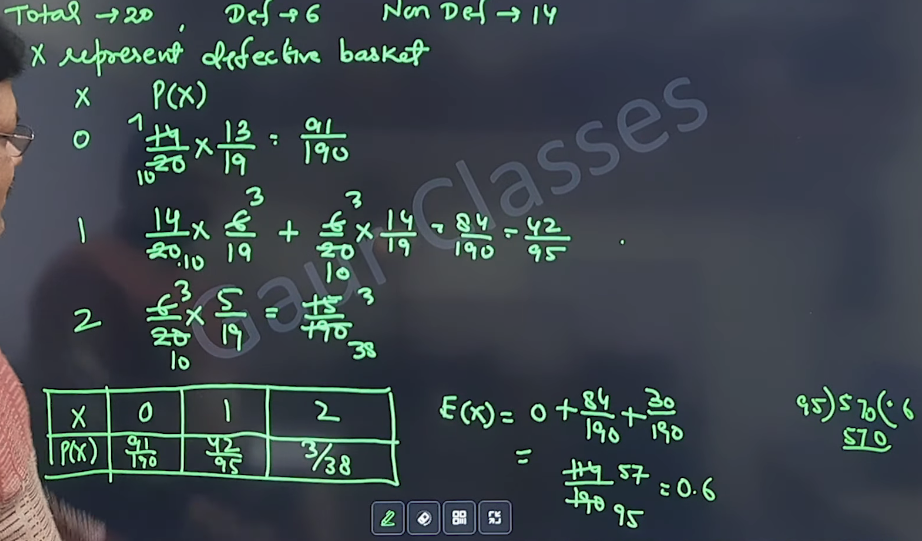 Total → 20, Def → 6 Non Def → 14
X represent defective basket
X P(X)
0 14/20 × 13/19 = 91/190
7 10
1 14/20 × 6/19 + 6/20 × 14/19 = 84/190 = 42/95
10 3 3 10
2 6/20 × 5/19 = 15/190
3 10 3 38
X 0 1 2
P(X) 91/190 42/95 3/38
E(X) = 0 + 84/190 + 30/190
= 114/190 57/95 = 0.6
95)570(.6
570
Gaur Classes